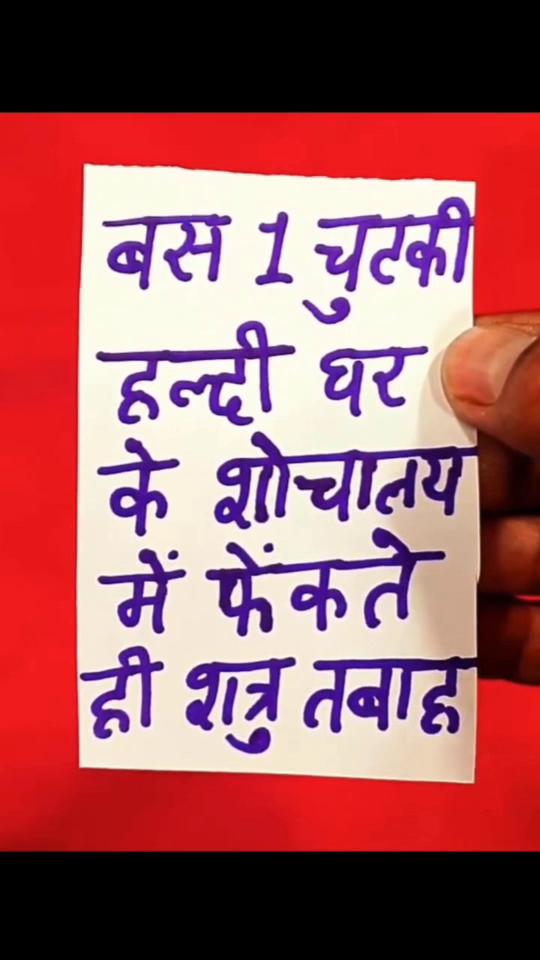 बस 1 चुटकी
हल्दी घर
के शोचालय
में फेंकते
ही शत्रु तबाह